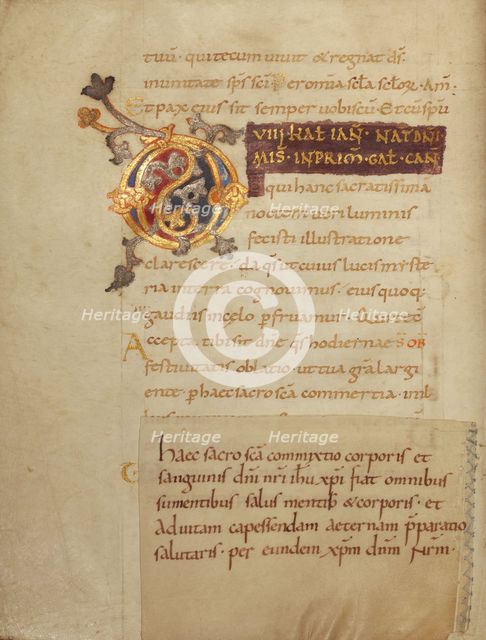 tuū. quitecum uiuit & regnat dſ.
inunitate sp̄s sc̄i. Per omnia sc̄la sc̄lor. Am̄.
Et pax eius sit semper uobiscū. Et cū sp̄u
VIII KAŁ IAN̄. NAT DN̄I
MIS̄. INPRIM̄. GAŁ. CAN̄
D̄S qui hanc sacratissima
noctem ueri luminis
fecisti illustratione
clarescere. da q̄s ut cuius lucis myste
ria interra cognouimus. eius quoq;
gaudiis incelo p̄fruamur. Qui tecū
Accepta tibi sit dn̄e q̄s hodiernae S OB
festiuitatis oblatio. ut tua gr̄a largi
ente. p̄ haec sacro sc̄a commertia. in il
Haec sacro sc̄a commixtio corporis et
sanguinis dn̄i nr̄i ih̄u xp̄i fiat omnibus
sumentibus salus mentis & corporis. et
ad uitam capessendam aeternam p̄paratio
salutaris. per eundem xp̄m dn̄m n̄rm̄.
Heritage
Heritage
Heritage
Heritage
Heritage
Heritage
Heritage
Heritage
©